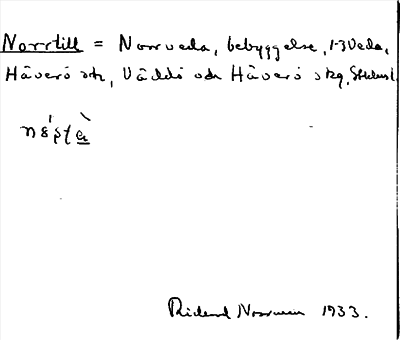 Norrtill = Norrveda, bebyggelse, 1-3 Veda,
Häverö sn, Väddö och Häverö skg, Stckhs l.
Rickard Norman 1933.